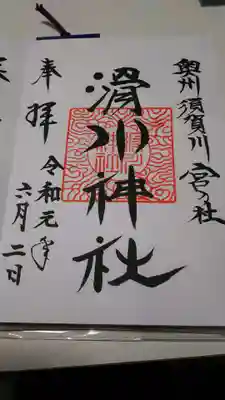 奥州須賀川 宮の社
滑川神社
奉拝
令和元年
六月二日